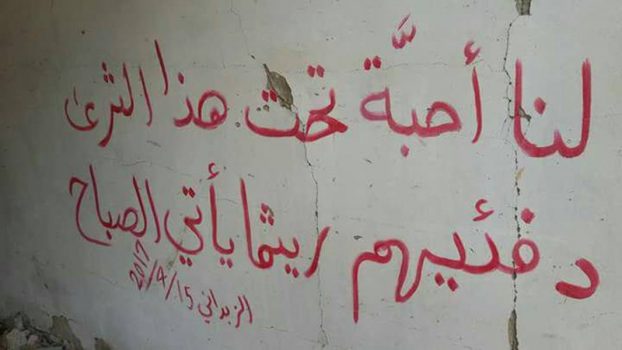 لنا أحبَّة تحت هذا الثرى
دفئيهم ريثما يأتي الصباح
الزبداني 2017/4/15